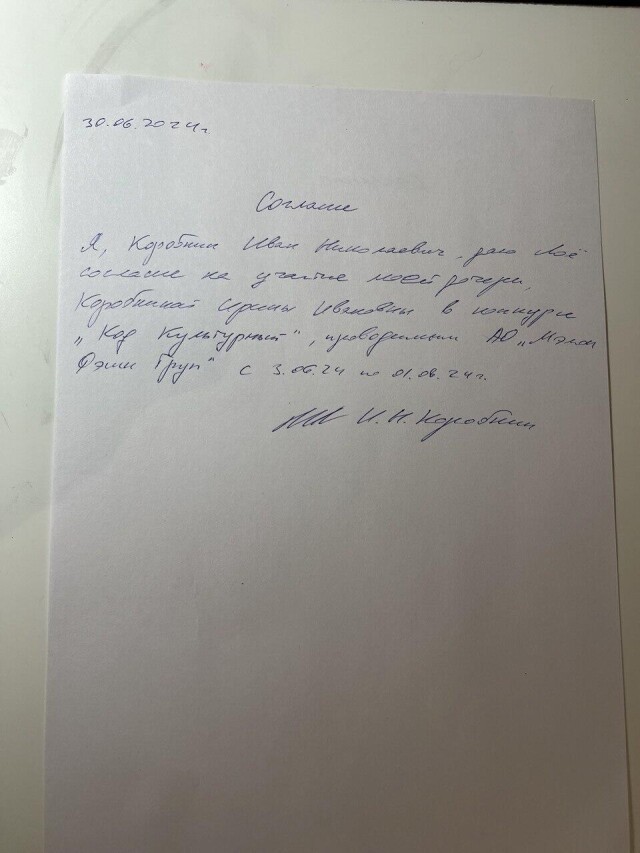 30.06.2024г.
Согласие
Я, Коробкин Иван Николаевич, даю своё
согласие на участие моей дочери,
Коробкиной Ирины Ивановны в конкурсе
"Код Культурный", проводимым АО "Мэлон
Фэшн Груп" с 3.06.24 по 01.08.24г.
И. Н. Коробкин